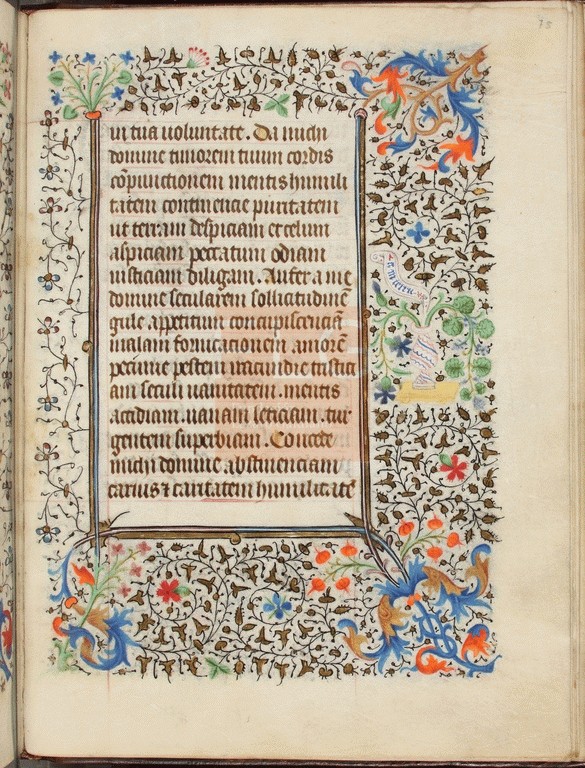 75
in tua uoluntate. Da michi
domine timorem tuum cordis
co̅punctionem mentis humili
tatem continencie puritatem
ut terram despiciam et celum
aspiciam peccatum odiam
iusticiam diligam. Aufer a me
domine secularem sollicitudine̅
gule appetitum concupiscencia̅
malam fornicationem amore̅
pecunie pestem iracundie tristici
am seculi uanitatem. mentis
accidiam. uanam leticiam. tur
gentem superbiam. Concede
michi domine abstinenciam
carnis ⁊ caritatem humilitate̅